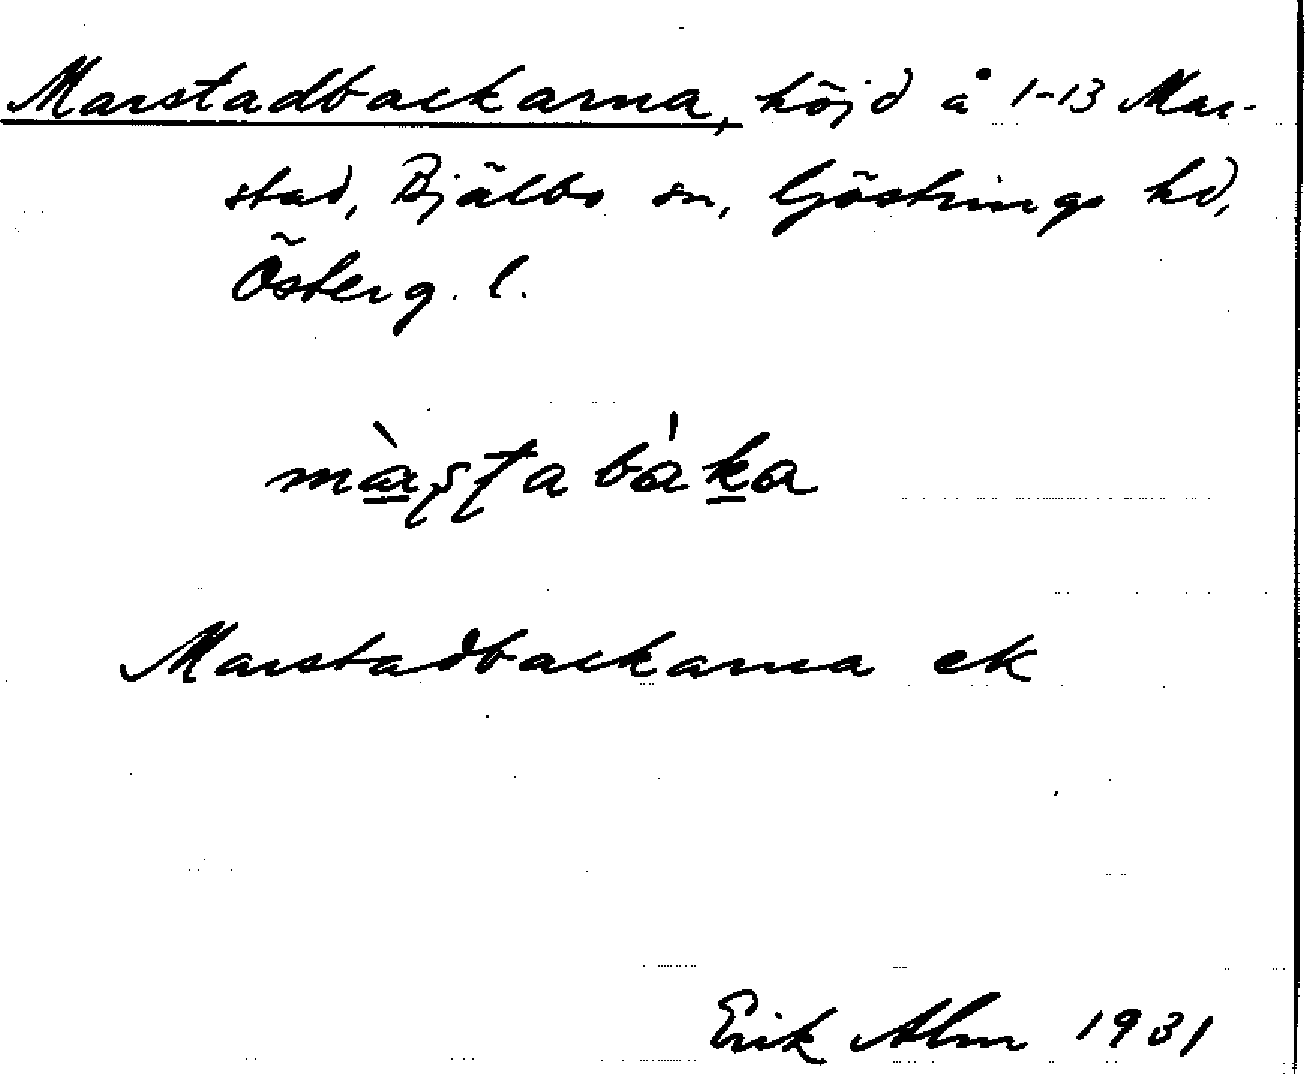 Marstadbackarna, höjd å 1-13 Mar-
stad, Bjälbo sn, Göstrings hd,
Österg. l.
màṣṭabàka
Marstadbackarna ek
Erik Alm 1931